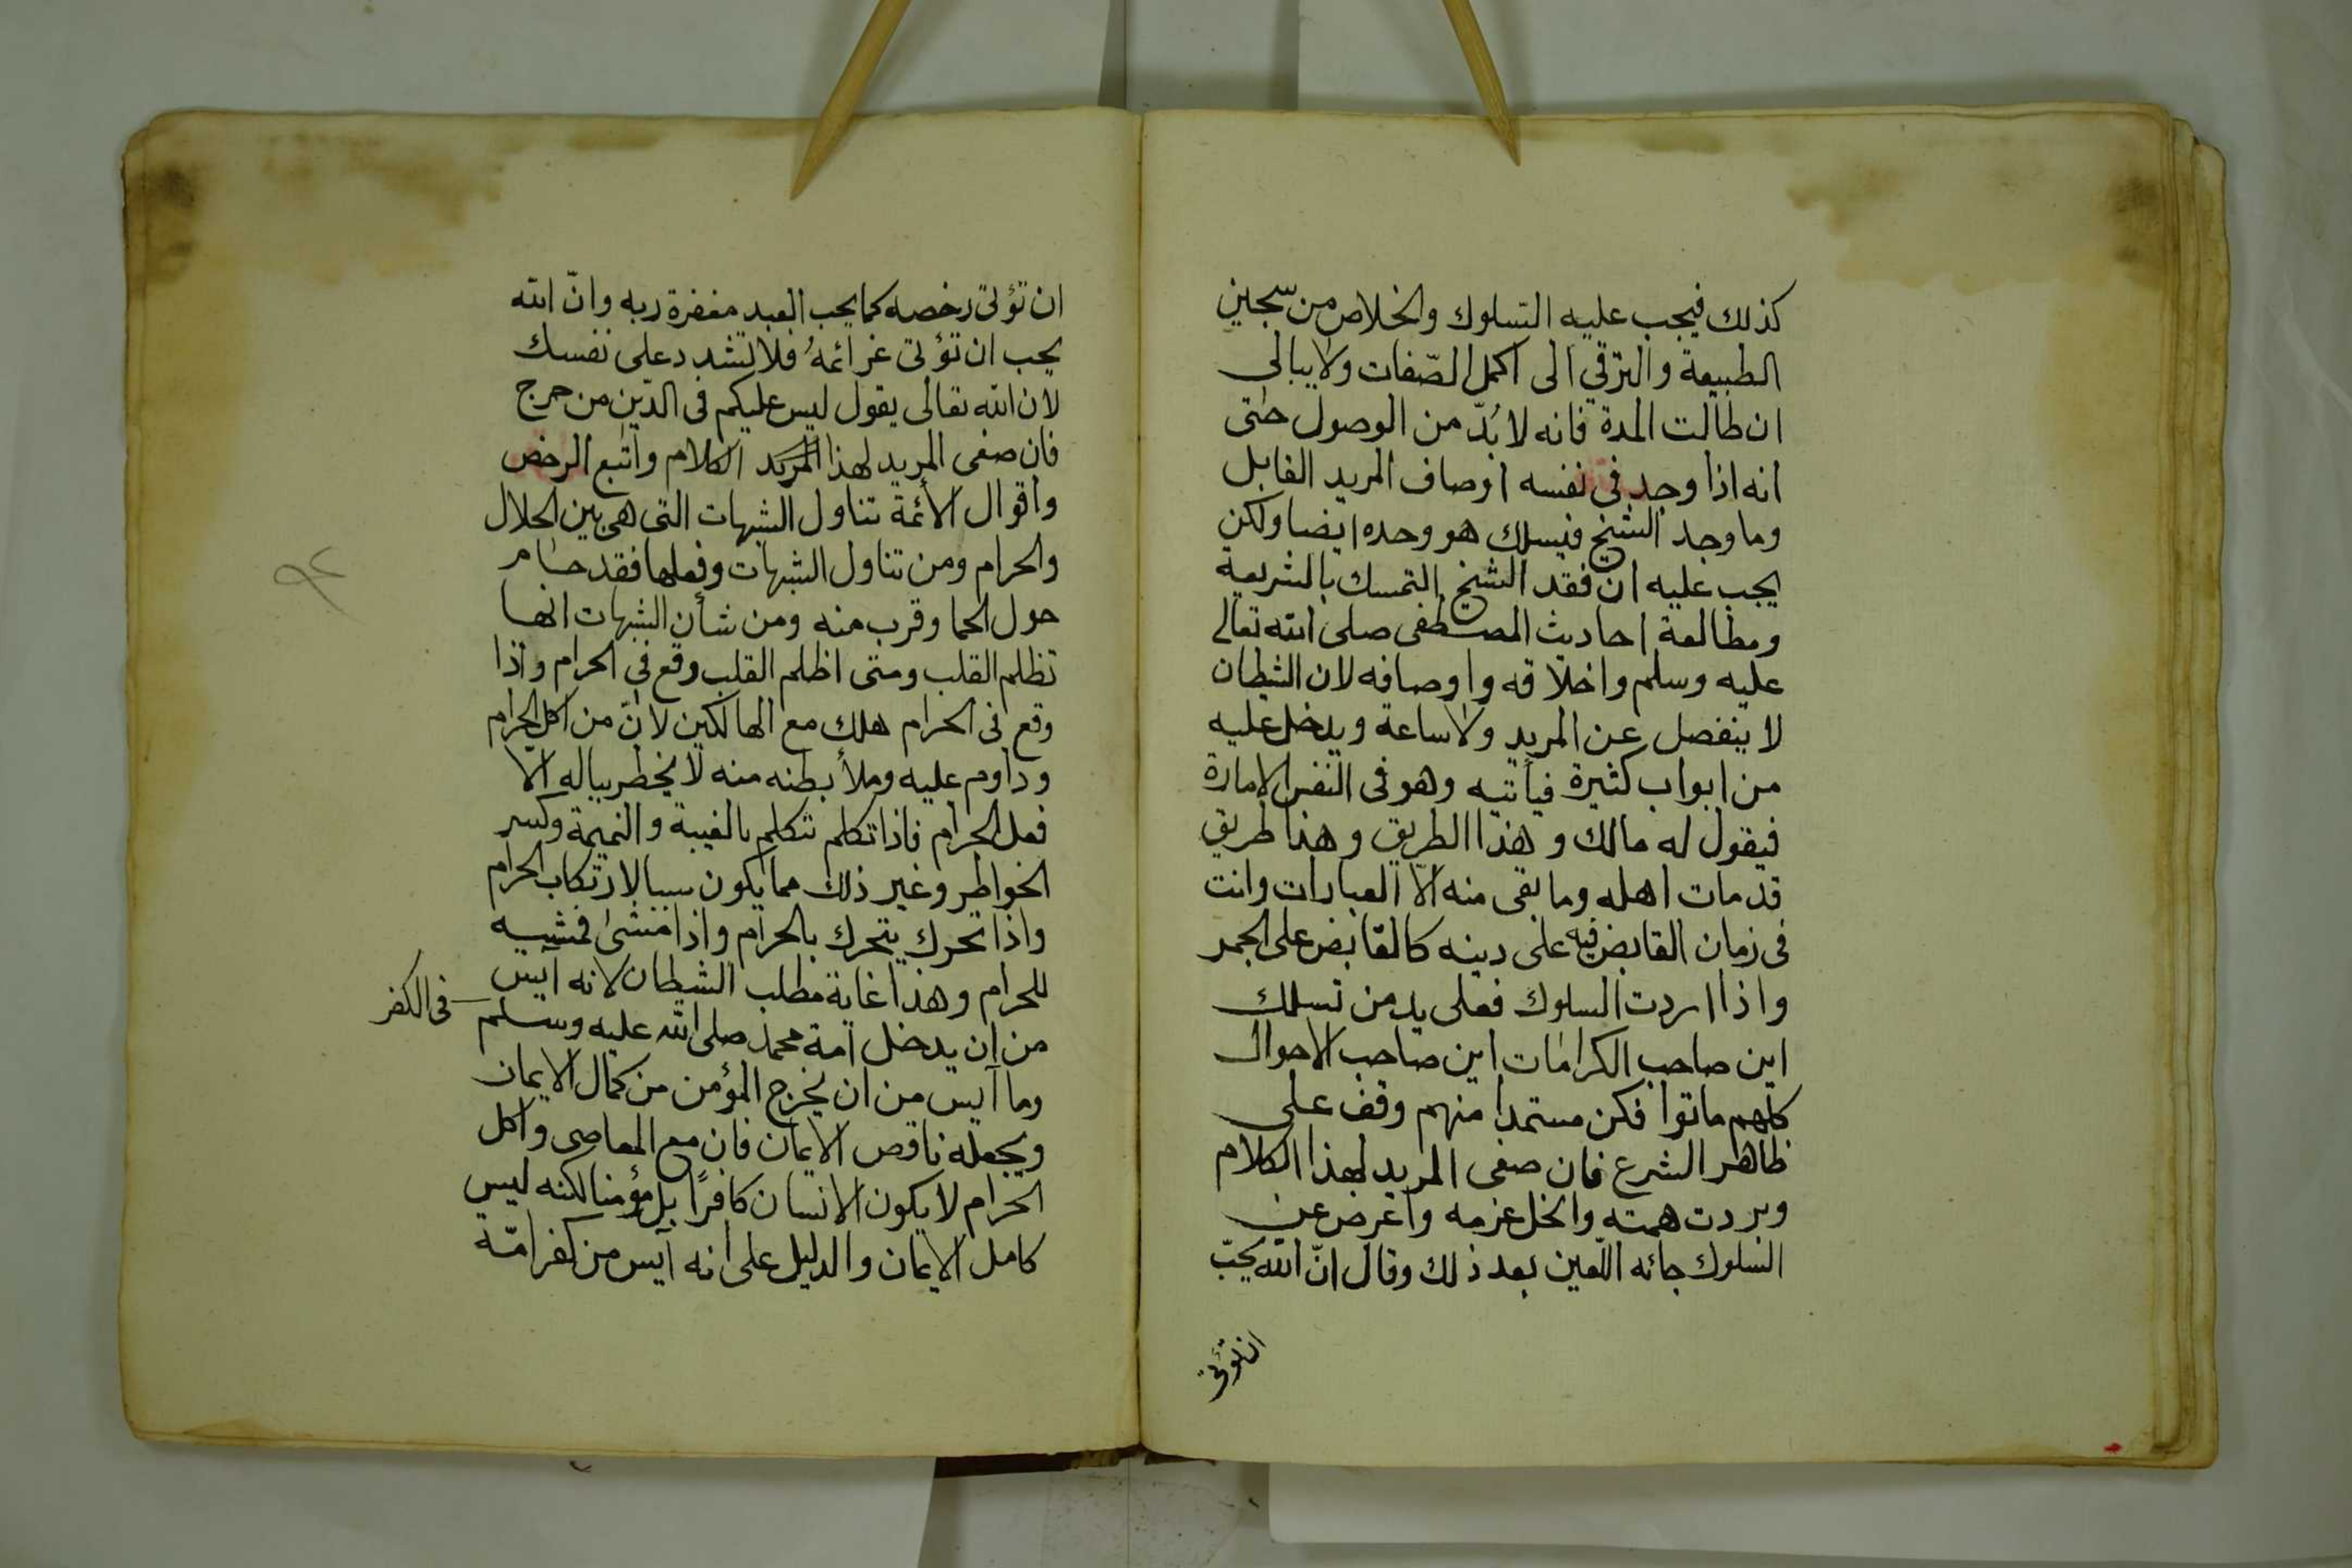 كذلك فيجب عليه التسلوك والخلاص من سجين
الطبيعة والترقي الى اكمل الصّفات ولا يبالى
ان طالت المدة فانه لا بُدّ من الوصول حتى
انه اذا وجد فى نفسه اوصاف المريد القابل
وما وجد الشيخ فيسلك هو وحده ايضا ولكن
يجب عليه ان فقد الشيخ التمسك بالشريعة
ومطالعة احاديث المصطفى صلى الله تعالى
عليه وسلم واخلاقه واوصافه لان الشيطان
لا ينفصل عن المريد ولا ساعة ويدخل عليه
من ابواب كثيرة فيأتيه وهو فى النفس الامارة
فيقول له مالك وهذا الطريق وهذا طريق
قد مات اهله وما بقى منه الاّ العبارات وانت
فى زمان القابض فيه على دينه كالقابض على الجمر
واذا اردت السلوك فعلى يد من تسلك
اين صاحب الكرامات اين صاحب الاحوال
كلهم ماتوا فكن مستمدا منهم وقف على
ظاهر الشرع فان صغى المريد لهذا الكلام
وبردت همته وانحل عزمه واعرض عن
السلوك جائه اللّعين بعد ذلك وقال انّ الله يحبّ
ان تؤتى
ان تؤتى رخصه كما يحب العبد مغفرة ربه وانّ الله
يحب ان تؤتى عزائمهُ فلا تشدد على نفسك
لان الله تعالى يقول ليس عليكم فى الدّين من حرج
فان صغى المريد لهذا الكلام واتبع الرخص
واقوال الأئمة تناول الشبهات التى هى بين الحلال
والحرام ومن تناول الشبهات وفعلها فقد حام
حول الحما وقرب منه ومن شأن الشبهات انها
تظلم القلب ومتى اظلم القلب وقع فى الحرام واذا
وقع فى الحرام هلك مع الهالكين لانّ من اكل الحرام
وداوم عليه وملأ بطنه منه لا يخطر بباله الا
فعل الحرام فاذا تكلم تتكلم بالغيبة والنميمة وكسر
الخواطر وغير ذلك مما يكون سببا لارتكاب الحرام
واذا تحرك يتحرك بالحرام واذا مشى فمشيه
للحرام وهذا غاية مطلب الشيطان لانه آيس
من ان يدخل امة محمد صلى الله عليه وسلم فى الكفر
وما آيس من ان يخرج المؤمن من كمال الايمان
ويجعله ناقص الايمان فان مع المعاصى واكل
الحرام لا يكون الانسان كافرًا بل مؤمنا لكنه ليس
كامل الايمان والدليل على انه آيس من كفر امّة
٩٢